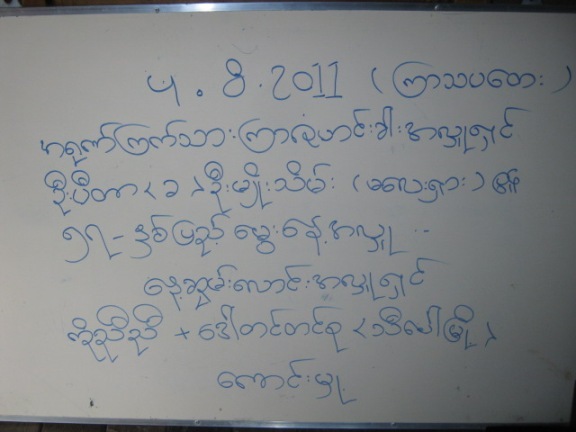 4 . 8 . 2011 ( ကြာသပတေး )
အရုဏ်ကြက်သားကြာဇံဟင်းခါးအလှူရှင်
ဦးပီတာ < ခ > ဦးမျိုးသိမ်း ( မလေးရှား ) ၏
၅၇- နှစ်ပြည့် မွေးနေ့အလှူ ..
နေ့ဆွမ်းလောင်းအလှူရှင်
ကိုညီညီ + ဒေါ်တင်တင်စု < သီပေါမြို့ >
ကောင်းမှု